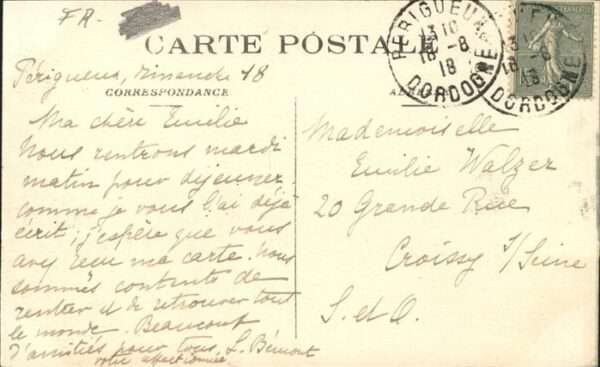 FR-
CARTE POSTALE
PÉRIGUEUX
13 10
18 - 8
18
DORDOGNE
13
18 - 8
18
DORDOGNE
Périgueux, Dimanche 18
CORRESPONDANCE
Ma chère Emilie
Nous rentrons mardi
matin pour déjeuner
comme je vous l'ai déjà
écrit; j'espère que vous
avez reçu ma carte. Nous
sommes contents de
rentrer et de retrouver tout
le monde. Beaucoup
d'amitiés pour tous. L. Bémont
votre affectionnée
Mademoiselle
Emilie Walzer
20 Grande Rue
Croissy s/Seine
S. et O.